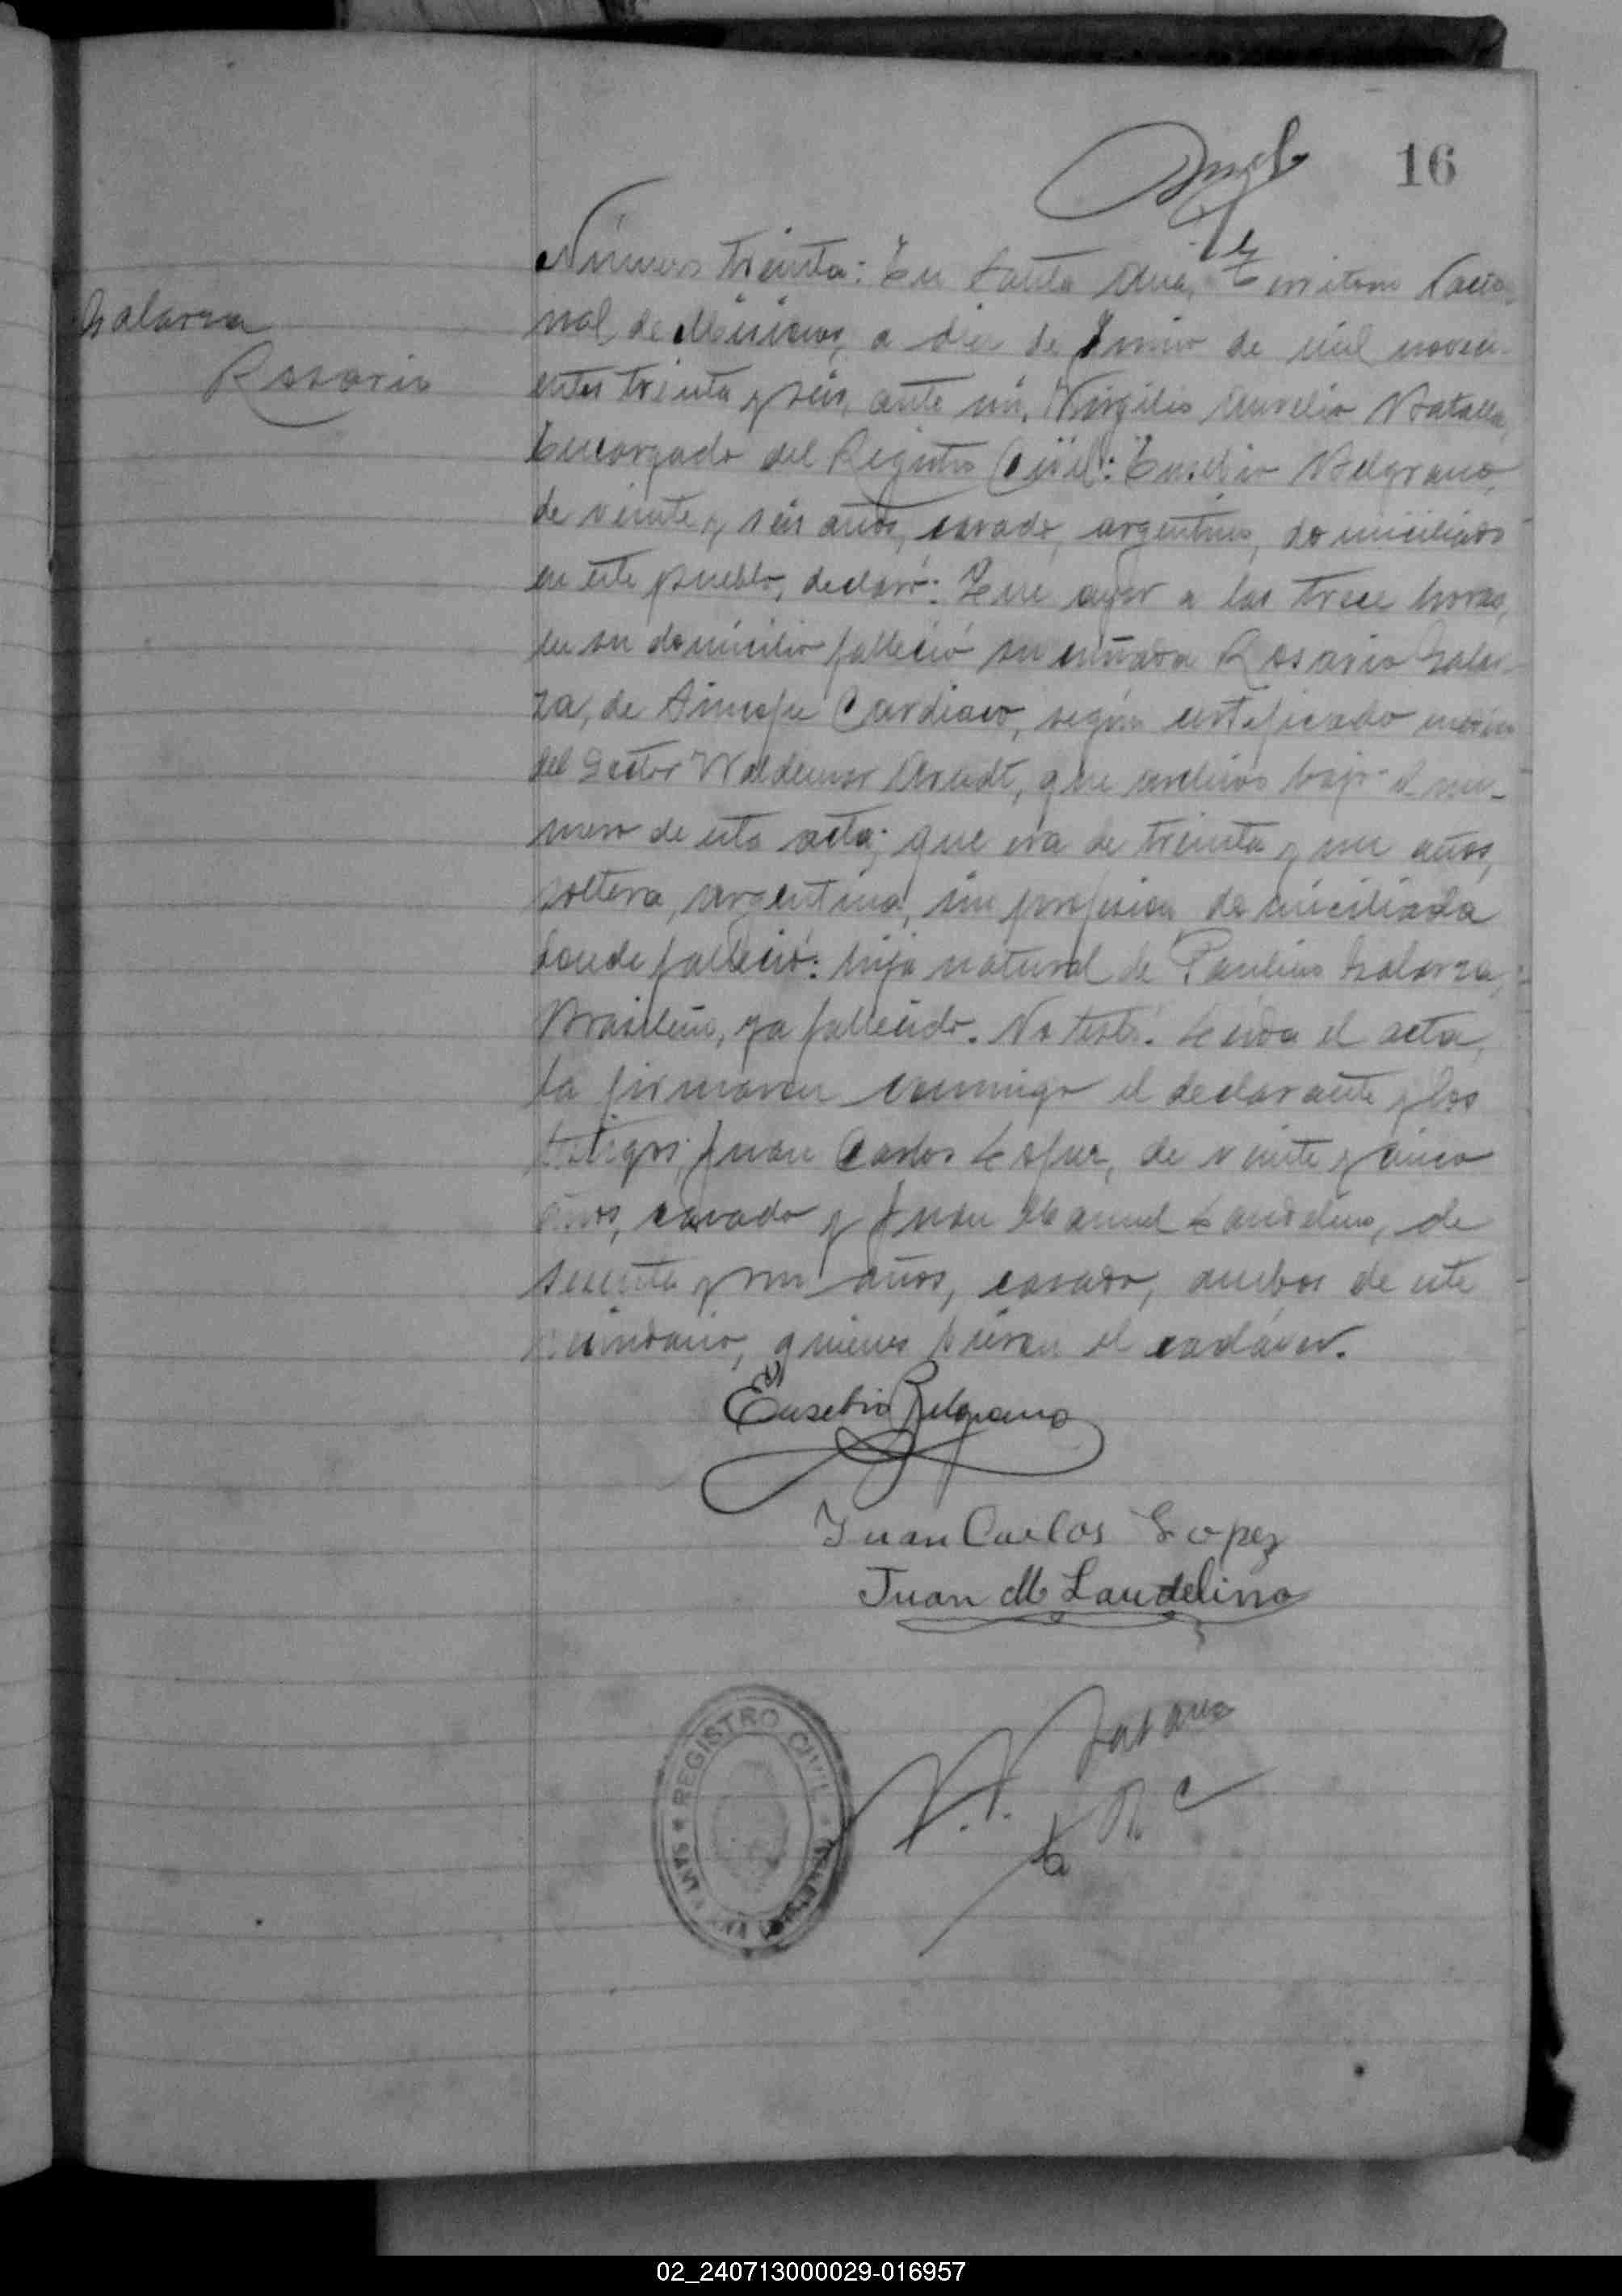 16
Número treinta: En Santa Ana, Territorio Nacio-
nal de Misiones, a diez de Junio de mil noveci-
Zalarza
entos treinta y seis, ante mi, Virgilio Aurelio Batalla,
Rosario
Encargado del Registro Civil: Eusebio Belgrano,
de veinte y seis años, casado, argentino, domiciliado
en este pueblo, declaró: Que ayer a las trece horas,
en su domicilio falleció su cuñada Rosario Zalar-
za, de Sincope Cardiaco, según certificado médico
del Doctor Waldemar Arendt, que archivo bajo el nu-
mero de esta acta; que era de treinta y un años,
soltera, argentina, sin profesion, domiciliada
donde falleció: hija natural de Paulino Zalarza,
Brasileño, ya fallecido. No testó. Leida el acta,
la firmaron conmigo el declarante y los
testigos: Juan Carlos Lopez, de veinte y cinco
años, casado y Juan Manuel Landelino, de
sesenta y un años, casado, ambos de este
vecindario, quienes vieron el cadáver.
Eusebio Belgrano
Juan Carlos Lopez
Juan M Landelino
REGISTRO CIVIL
SANTA ANA
E R C
02_240713000029-016957